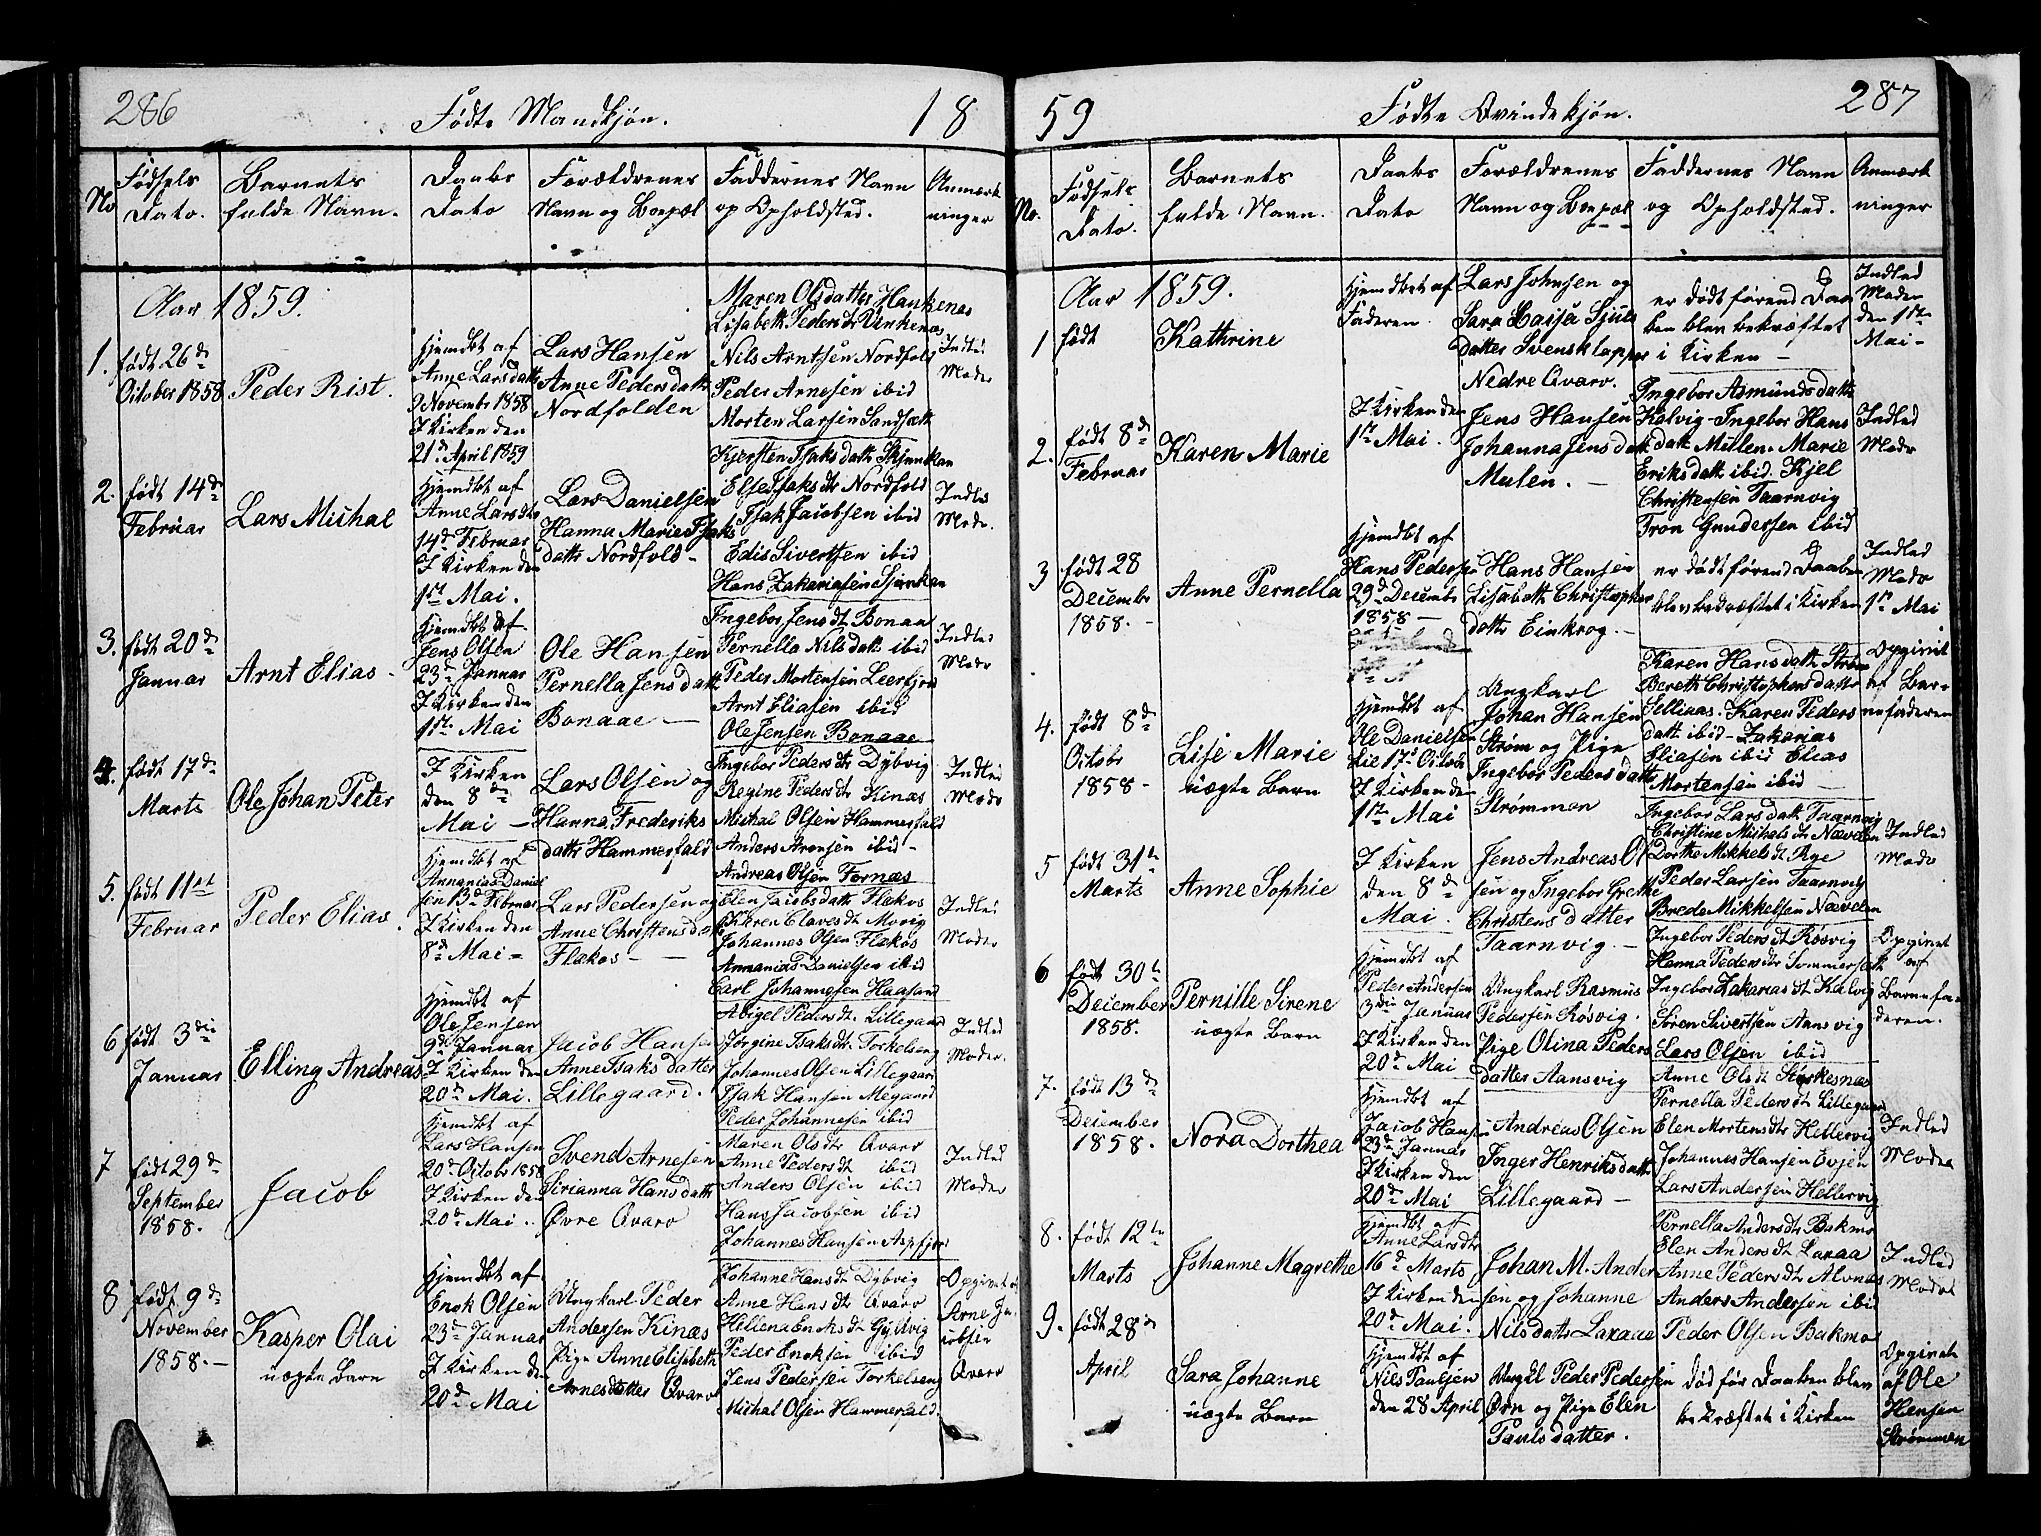 286
Fødte Mandkjøn.
18
No
Fødsels Dato.
Barnets fulde Navn.
Daabs Dato
Forældrenes Navn og Boepæl
Faddernes Navn og Opholdsted.
Anmærkninger
Aar 1859.
1.
født 26de
October 1858
Peder Rist.
Hjemdbt af
Anne Larsdatt
9 Novembr 1858
I Kirken den
21de April 1859
Lars Hansen
Anne Pedersdatt
Nordfolden
Maren Olsdatter
Lisabeth Pedersdtr
Nils Arntsen Nordfold
Peder Arnesen ibid
Morten Larsen Sandsæth
Indled
Moder
2.
født 14de
Februar
Lars Michal
Hjemdbt af
Anne Larsdtr
14de Februar
I Kirken den
1ste Mai.
Lars Danielsen
Hanna Marie Isaks
datter Nordfold -
Kjersten Isaksdatt
Else Isaksdtr Nordfold
Isak Jacobsen ibid
Edis Sivertsen ibid
Hans Zakariasen
Indled
Mode.
3.
født 20de
Januar
Arnt Elias -
Hjemdbt af
Jens Olsen
23de Januar
I Kirken den
1ste Mai
Ole Hansen
Pernella Jensdatt
Bonaae —
Ingebor Jensdt Bonaae
Pernella Nilsdatt ibid
Peder Mortensen Leerfjord
Arnt Eliasen ibid
Ole Jensen Bonaae
Indled
Modr
4.
født 17de
Marts
Ole Johan Peter
I Kirken
den 8de
Mai —
Lars Olsen og
Hanna Frederiks
datter Hammerfald
Ingebor Pedersdtr Dybvig
Regine Pedersdtr Kinæs
Michal Olsen Hammerfald
Anders Aronsen ibid -
Andreas Olsen Fornæs
Indled
Modr
5.
født 11te
Februar
Peder Elias.
Hjemdbt af
Annanias Daniel
sen 13de Februar
I Kirken den
8de Mai -
Lars Pedersen og
Anne Christensdatt
Flakos - -
Elen Jacobsdatt Flakos
Karen Olavesdt
Johannes Olsen Flakos
Annanias Danielsen ibid
Carl Johannesen
Indled
Moder
6
født 3die
Januar
Elling Andreas
Hjemdbt af
Ole Jensen
9de Januar
I Kirken den
20de Mai.
Jacob Hansen
Anne Isaksdatter
Lillegaard.
Abigel Pedersdtr Lillegaard
Jørgine Isaksdtr Torkelseng
Johannes Olsen Lillegaard
Isak Hansen Megaard
Peder Johannesen ibid
Indled
Moder.
7
født 29de
September
1858.
Jacob
Hjemdbt af
Lars Hansen
20de Octobr 1858
I Kirken den
20de Mai.
Svend Arnesen
Sirianna Hansdatt
Øvre Qvarv
Maren Olsdtr Qvarv
Anne Pedersdt ibid
Anders Olsen ibid
Hans Jacobsen ibid
Johannes Hansen Aspfjord
Indled
Moder
8
født 9de
November
1858. -
Kasper Olai
uægte Barn
Hjemdbt af
Enok Olsen
23de Januar
I Kirken den
20de Mai
Ungkarl Peder
Andersen Kinæs
Pige Anne Elisabeth
Arnesdatter Qvarv
Johanne Hansdt Dybvig
Anne Hansdtr Qvarv
Hellena Enoksdt Gyltvig
Peder Enoksen ibid
Jens Pedersen Torkelseng
Michal Olsen Hammerfald.
Opgivet af
Arne Ja-
cobsen
Qvarv
59
Fødte Qvindekjøn.
287
No.
Fødsels Dato.
Barnets fulde Navn.
Daabs Dato
Forældrenes Navn og Boepæl
Faddernes Navn og Opholdsted.
Anmærkninger
Aar 1859.
1
født
Kathrine
Hjemdbt af
Faderen.
Lars Johnsen og
Sara Caisa Sjuls
datter Svensklapper
Nedre Qvarv.
er død førend Daa
ben blev bekræftet
i Kirken —
Indled
Moder
den 1ste
Mai -
2.
født 8de
Februar
Karen Marie
I Kirken den
1ste Mai.
Jens Hansen
Johanna Jensdatt
Mulen. —
Ingebor Asmundsdatt
Kalvig. Ingebor Hans
datt Mullen. Marie
Eriksdatt ibid. Kjel
Christensen Taarnvig
Tron Gundersen ibid
Indled
Modr
3
født 28
Decembr
1858. -
Anne Pernella
Hjemdbt af
Hans Pedersen
29de Decembr
1858 —
Hans Hansen
Lisabeth Christopher
datter Einkrog. —
er død førend Daaben
blev bekræftet i Kirken
Indled
Modr
1ste Mai
4.
født 8de
Octobr
1858 -
Lise Marie
uægte Barn
Hjemdbt af
Ole Danielsen
die 17de Octobr
I Kirken den
1ste Mai
Ungkarl
Johan Hansen
Strøm og Pige
Ingebor Pedersdatt
Strømmen
Karen Hansdatt Strøm
Bereth Christophersdatter
Selliaas. Karen Peders
datt ibid - Zakarias
Eliasen ibid Elias
Mortensen ibid —
Opgivet
af Bar-
nefaderen
5
født 31te
Marts
Anne Sophie
I Kirken
den 8de
Mai.
Jens Andreas Ol
sen og Ingebor Grethe
Christensdatter
Taarnvig. —
Ingebor Larsdatt Taarnvig
Christine Michalsdtr Nævelen
Dorthe Mikkelsdt Rye
Peder Larsen Taarnvig
Brede Mikkelsen Nævelen
Indled
Modr
6
født 30te
December
1858.
Pernille Sirene
uægte Barn
Hjemdbt af
Peder Andersen
3die Januar
I Kirken den
20de Mai
Ungkarl Rasmus
Pedersen Røsvig.
Pige Olina Peders
datter Aansvig
Ingebor Pedersdt Røsvig
Hanna Pedersdtr Sommerseth
Ingebor Zakariasdt Kalvig
Søren Sivertsen Aansvig
Lars Olsen ibid
Opgivet
af
Barnefa-
deren.
7.
født 13de
December
1858.
Nora Dorthea
Hjemdbt af
Jacob Hansen
23de Januar
I Kirken den
20de Mai
Andreas Olsen
Inger Henriksdatt
Lillegaard —
Anne Olsdt Størkesnæs
Pernella Pedersdt Lillegaard
Elen Mortensdtr Hellervig
Johannes Hansen Evjen
Lars Andersen Hellervig
Indled
Moder
8.
født 12te
Marts
Johanne Magrethe
Hjemdbt af
Anne Larsdtr
16de Marts
I Kirken den
20de Mai.
Johan M. Ander
sen og Johanne
Nilsdatter Laxaae
Pernella Andersdtr Bakmo
Elen Andersdt Laxaa
Anne Pedersdtr Alvnæs
Anders Andersen ibid
Peder Olsen Bakmo
Indled
Moder
9.
født 28de
April
Sara Johanne
uægte Barn
Hjemdbt af
Nils Paulsen
den 28 April
Ungkl Peder Pedersen
Ørn og Pige Elen
Paulsdatter.
død før Daaben blev
bekræftet i Kirken
Opgivet
af Ole
Hansen
Strømmen